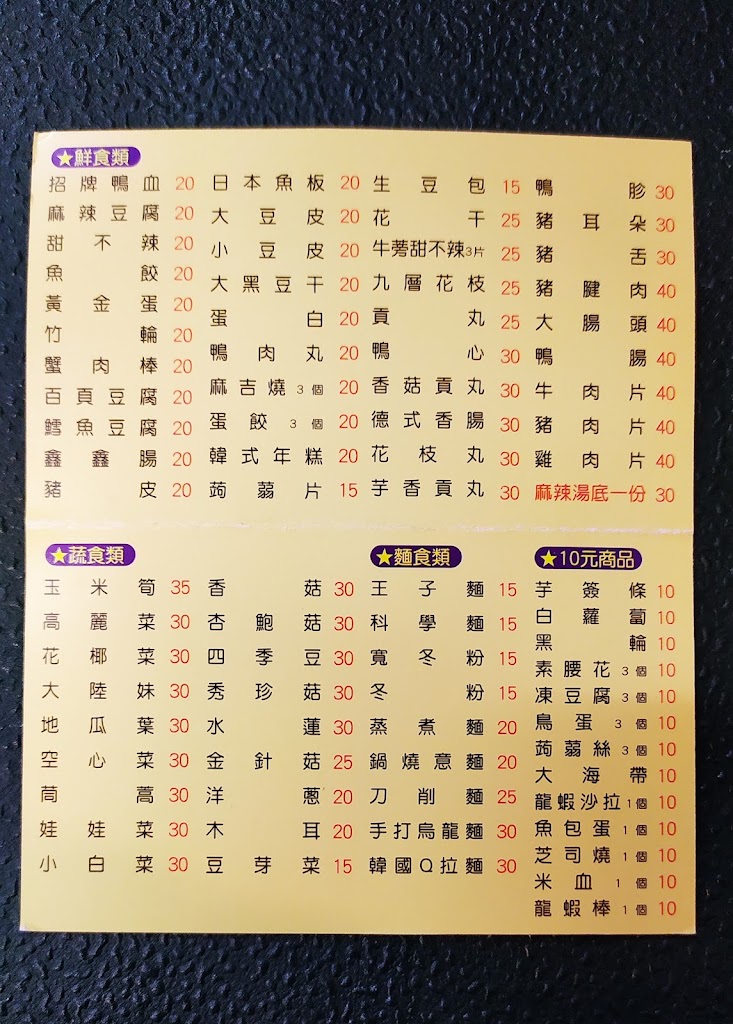 ★鮮食類
招牌鴨血 20
麻辣豆腐 20
甜不辣 20
魚餃 20
黃金蛋 20
竹輪 20
蟹肉棒 20
百頁豆腐 20
鱈魚豆腐 20
鑫鑫腸 20
豬皮 20
日本魚板 20
大豆皮 20
小豆皮 20
大黑豆干 20
蛋白 20
鴨肉丸 20
麻吉燒3個 20
蛋餃3個 20
韓式年糕 20
蒟蒻片 15
生豆包 15
花干 25
牛蒡甜不辣3片 25
九層花枝 25
貢丸 25
鴨心 30
香菇貢丸 30
德式香腸 30
花枝丸 30
芋香貢丸 30
鴨胗 30
豬耳朵 30
豬舌 30
豬腱肉 40
大腸頭 40
鴨腸 40
牛肉片 40
豬肉片 40
雞肉片 40
麻辣湯底一份 30
★蔬食類
玉米筍 35
高麗菜 30
花椰菜 30
大陸妹 30
地瓜葉 30
空心菜 30
茼蒿 30
娃娃菜 30
小白菜 30
香菇 30
杏鮑菇 30
四季豆 30
秀珍菇 30
水蓮 30
金針菇 25
洋蔥 20
木耳 20
豆芽菜 15
★麵食類
王子麵 15
科學麵 15
寬冬粉 15
冬粉 15
蒸煮麵 20
鍋燒意麵 20
刀削麵 25
手打烏龍麵 30
韓國Q拉麵 30
★10元商品
芋簽條 10
白蘿蔔 10
黑輪 10
素腰花3個 10
凍豆腐3個 10
鳥蛋3個 10
蒟蒻絲3個 10
大海帶 10
龍蝦沙拉1個 10
魚包蛋1個 10
芝司燒1個 10
米血1個 10
龍蝦棒1個 10